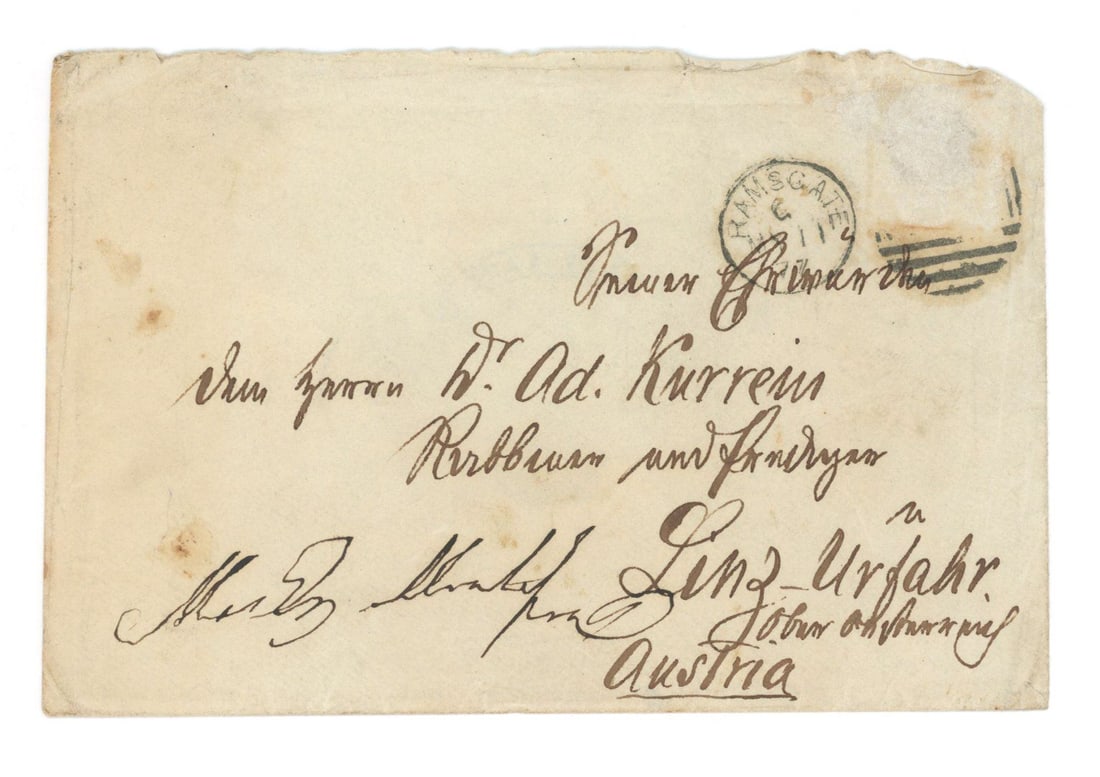 RAMSGATE
6
11
Seiner Ehrwürden
dem Herrn Dr. Ad. Kurrein
Rabbiner und Prediger
Linz-Urfahr.
Ober Oesterreich
Austria